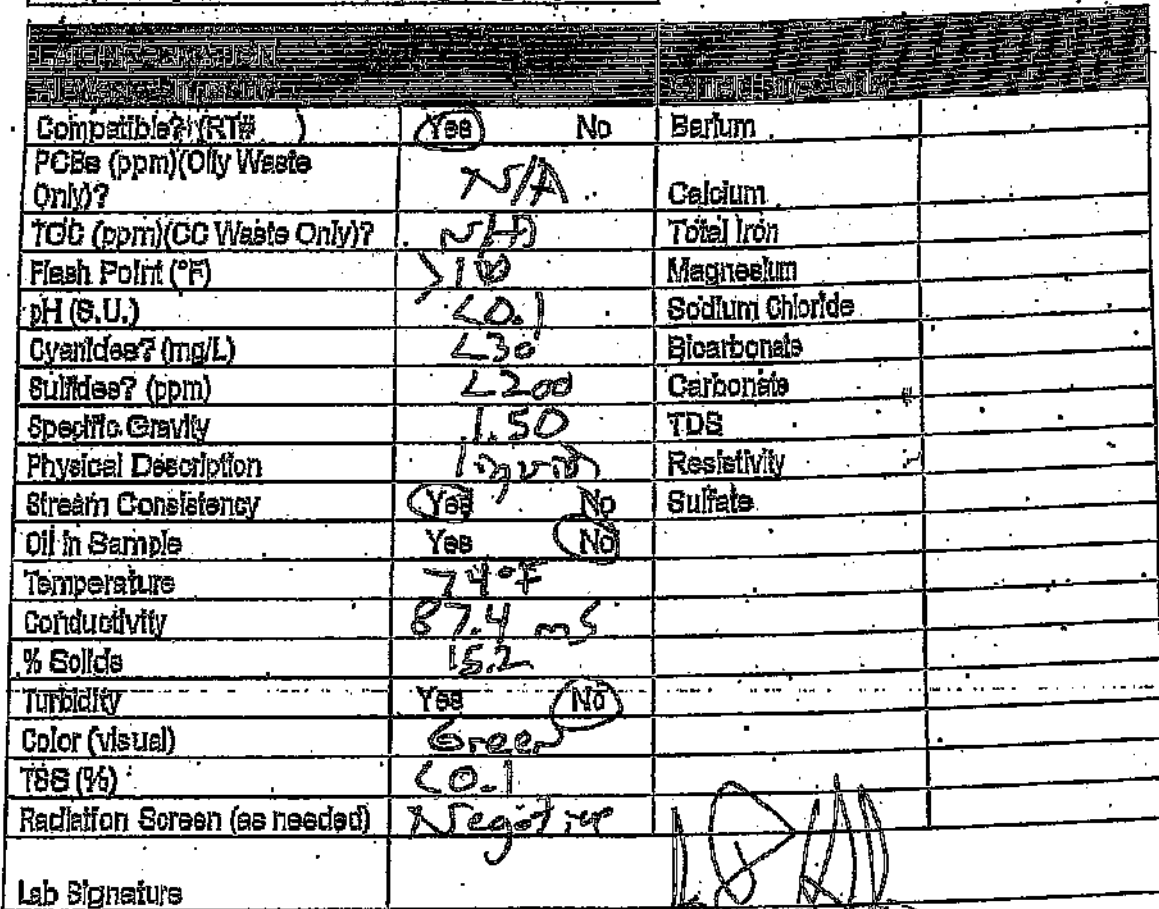 LAB INFORMATION
Compatible? (RT# ) Yes No Barium
PCBs (ppm)(Oily Waste
Only)? N/A Calcium
TOC (ppm)(CC Waste Only)? N/A Total Iron
Flash Point (°F) Magnesium
pH (S.U.) <0.1 Sodium Chloride
Cyanides? (mg/L) <30 Bicarbonate
Sulfides? (ppm) <200 Carbonate
Specific Gravity 1.50 TDS
Physical Description liquid Resistivity
Stream Consistency Yes No Sulfate
Oil in Sample Yes No
Temperature 74°F
Conductivity 87.4 mS
% Solids 15.2
Turbidity Yes No
Color (visual) Green
TSS (%) <0.1
Radiation Screen (as needed) Negative
Lab Signature